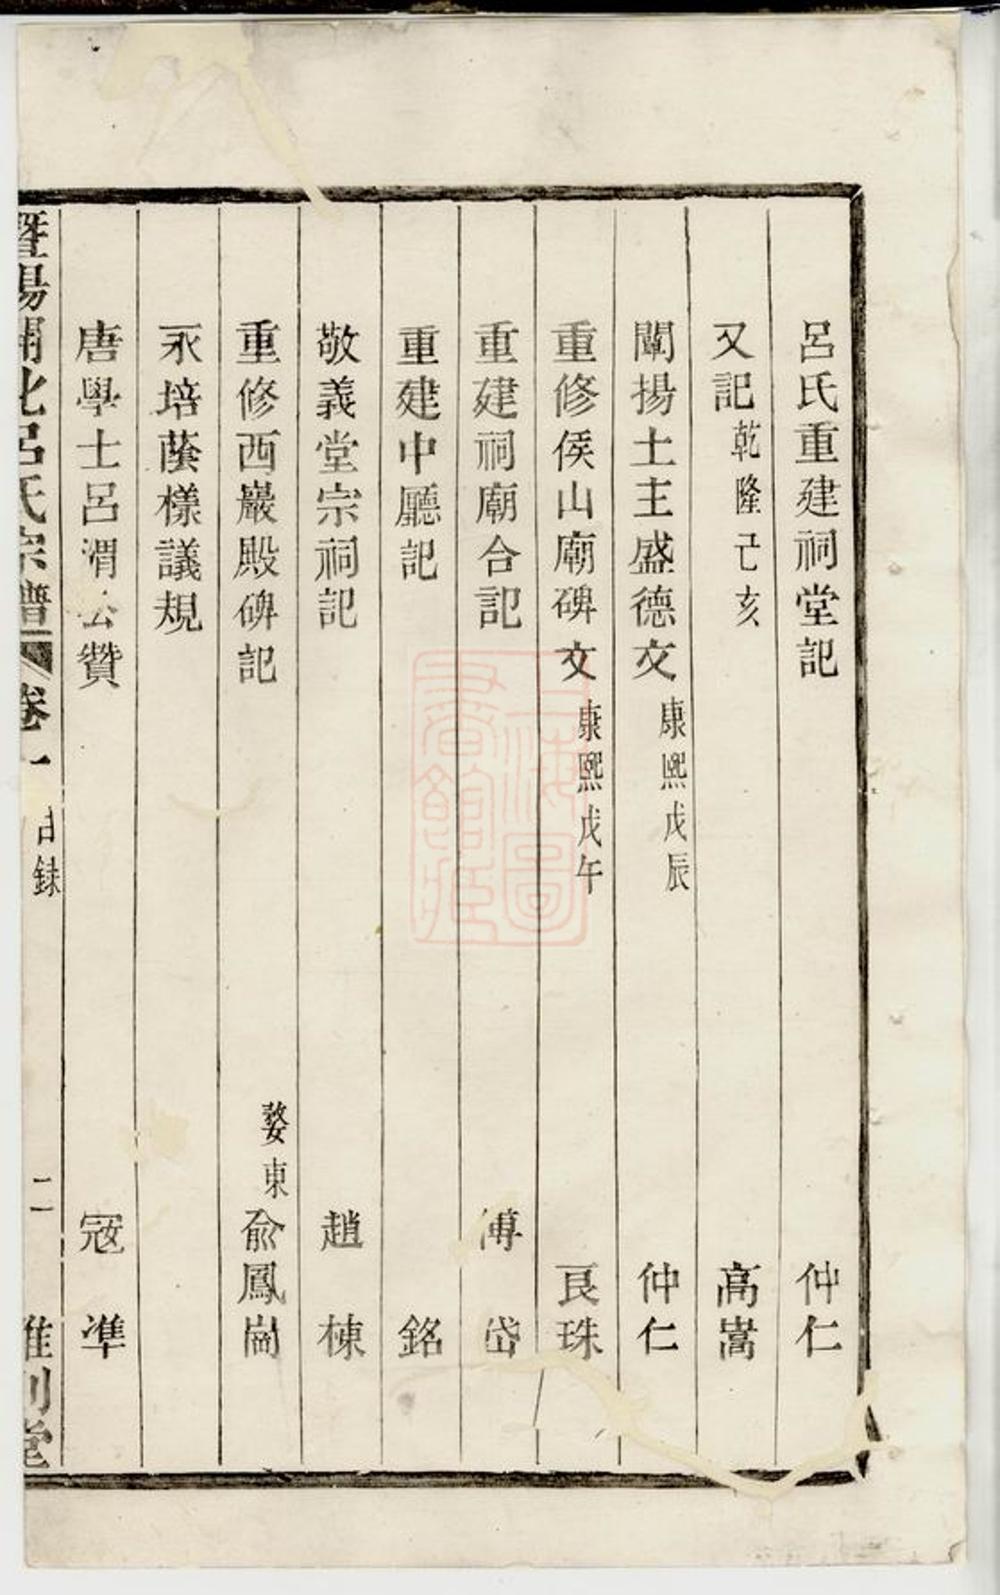 呂氏重建祠堂記 仲仁
又記 乾隆己亥 高嵩
闡揚土主盛德文 康熙戊辰 仲仁
重修侯山廟碑文 康熙戊午 良珠
重建祠廟合記 傅岱
重建中廳記 銘
敬義堂宗祠記 趙棟
重修西巖殿碑記 婺東 俞鳳崗
永培蔭樣議規
唐學士呂渭公贊 寇準
暨陽開化呂氏宗譜 卷一 目録 二
上海圖書館藏